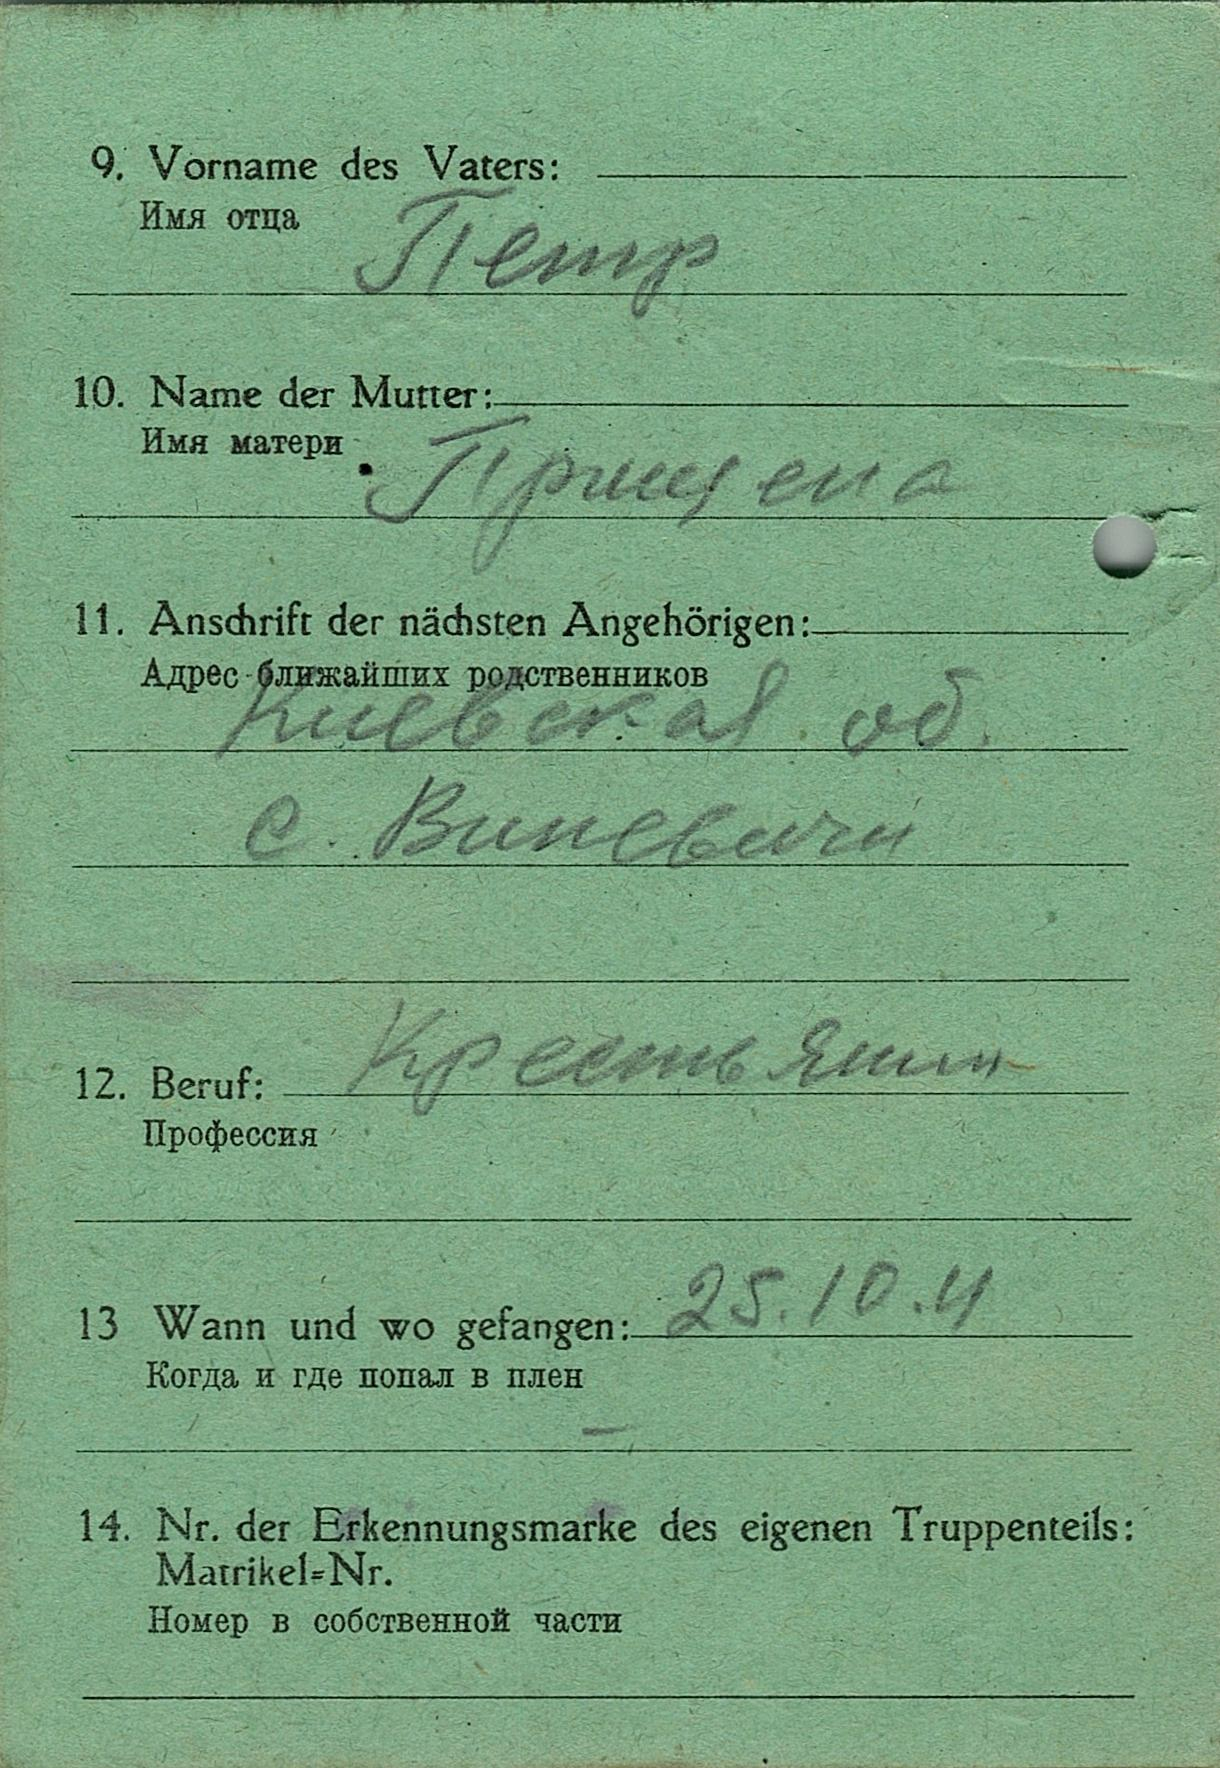 9. Vorname des Vaters:
Имя отца
Петр
10. Name der Mutter:
Имя матери
Прищепа
11. Anschrift der nächsten Angehörigen:
Адрес ближайших родственников
Киевская об.
с. Виневичи
Крестьянин
12. Beruf:
Профессия
13 Wann und wo gefangen: 25.10.41
Когда и где попал в плен
–
14. Nr. der Erkennungsmarke des eigenen Truppenteils:
Matrikel=Nr.
Номер в собственной части